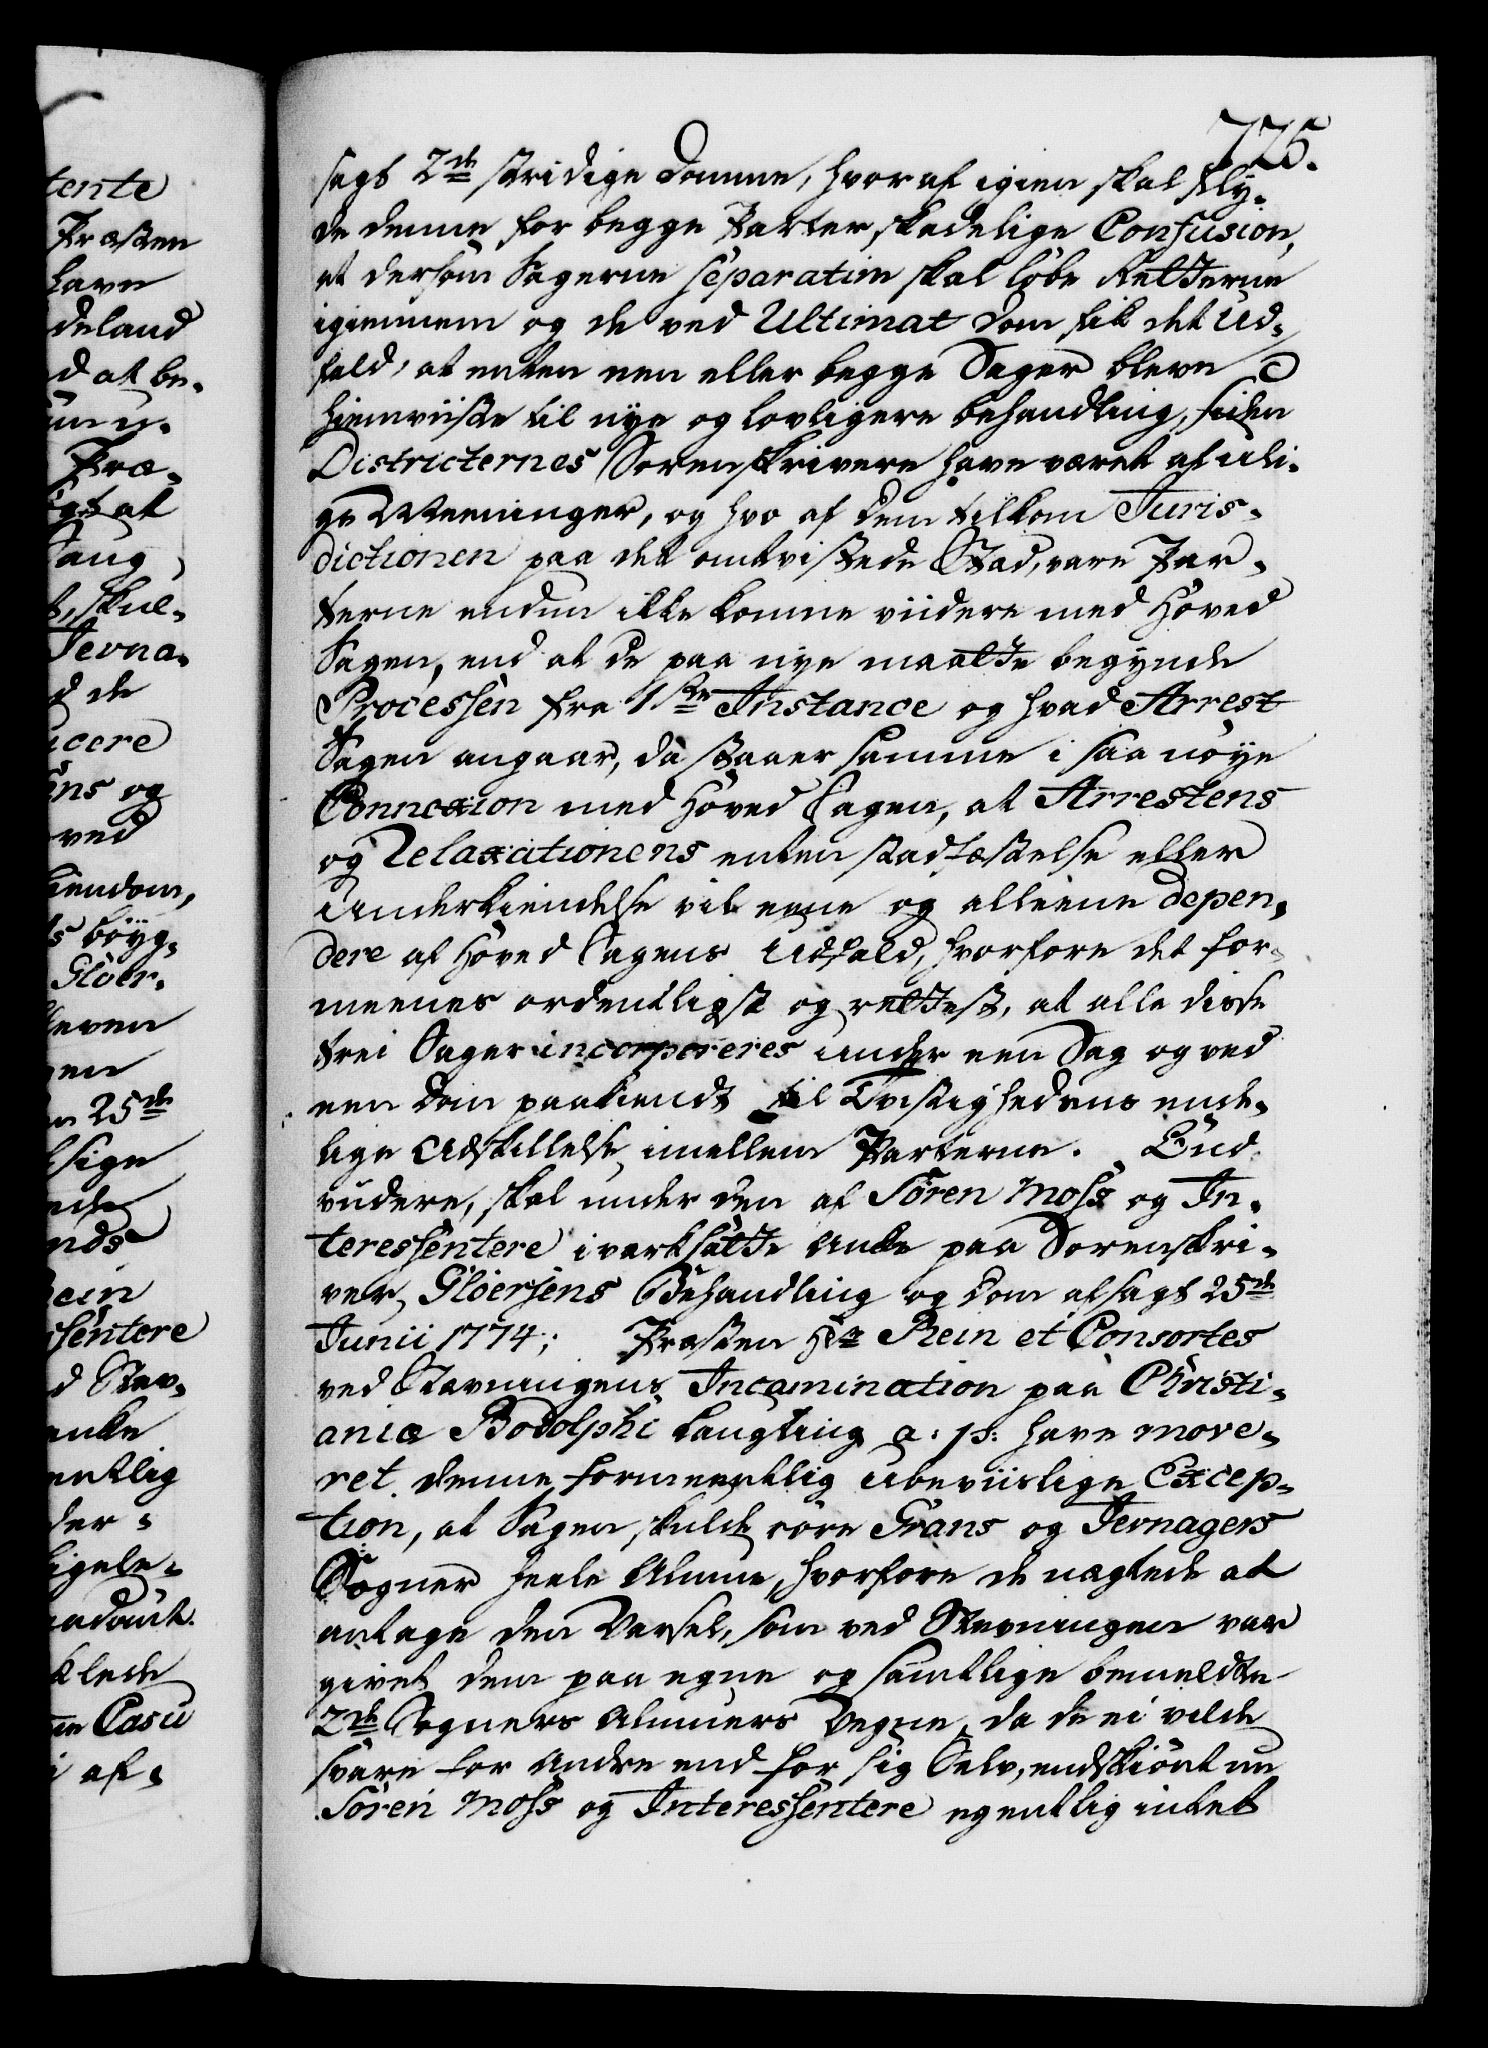 775.
sagt 2de stridige Domme, hvoraf igien skal fly-
de denne for begge Parter skadelige Confusion,
at dersom Sagerne separatim skal löbe Retterne
igiennem og de ved Ultimat Dom fik det Ud-
fald, at enten een eller begge Sager bleve
hiemviiste til nye og lovligere behandling, siden
Districternes Sorenskrivere have været af uli-
ge Meeninger, og hvo af dem tilkom Juris-
dictionen paa det omtvistede Stæd, vare Par-
terne endnu ikke komne viidere med Hoved
Sagen, end at de paa nye maatte begynde
Processen fra 1ste Instance og hvad Arrest
Sagen angaar, da staaer samme i saa nöye
Connexion med Hoved Sagen, at Arrestens
og Relaxationens enten stadfæstelse eller
underkiendelse vil eene og alleene depen-
dere af Hoved Sagens Udfald, hvorfore det for-
meenes ordentligst og rettest, at alle disse
trei Sager incorporeres under een Sag og ved
een Dom paakiendt til Tvistighedens ende-
lige Adskillelse imellem Parterne. End
viidere, skal under den af Sören Moss og In-
teressentere iverksatte Anke paa Sorenskri-
ver Glöersens Behandling og Dom afsagt 25de
Junii 1774; Præsten Hr Rein et Consortes
ved Stevningens Incamination paa Christi-
aniæ Bodolphi Laugting a: p: have move-
ret denne formeentlig ubeviislige Excep-
tion, at Sagen skulde röre Grans og Jevnagers
Sogner heele Almue, hvorfore de nægtede at
antage den Varsel, som ved Stevningen var
givet dem paa egne og samtlige bemeldte
2de Sogners Almues Vegne, da de ei vilde
svare for Andre end for sig Selv, endskiönt nu
Sören Moss og Interessentere egentlig intet